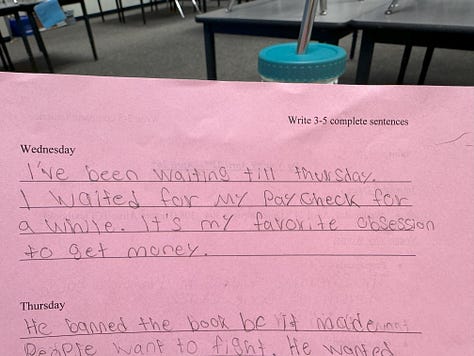 Write 3-5 complete sentences
Wednesday
I've been waiting till thursday.
I waited for my paycheck for
a while. It's my favorite obsession
to get money.
Thursday
He banned the book bc it made
people want to fight. He wanted